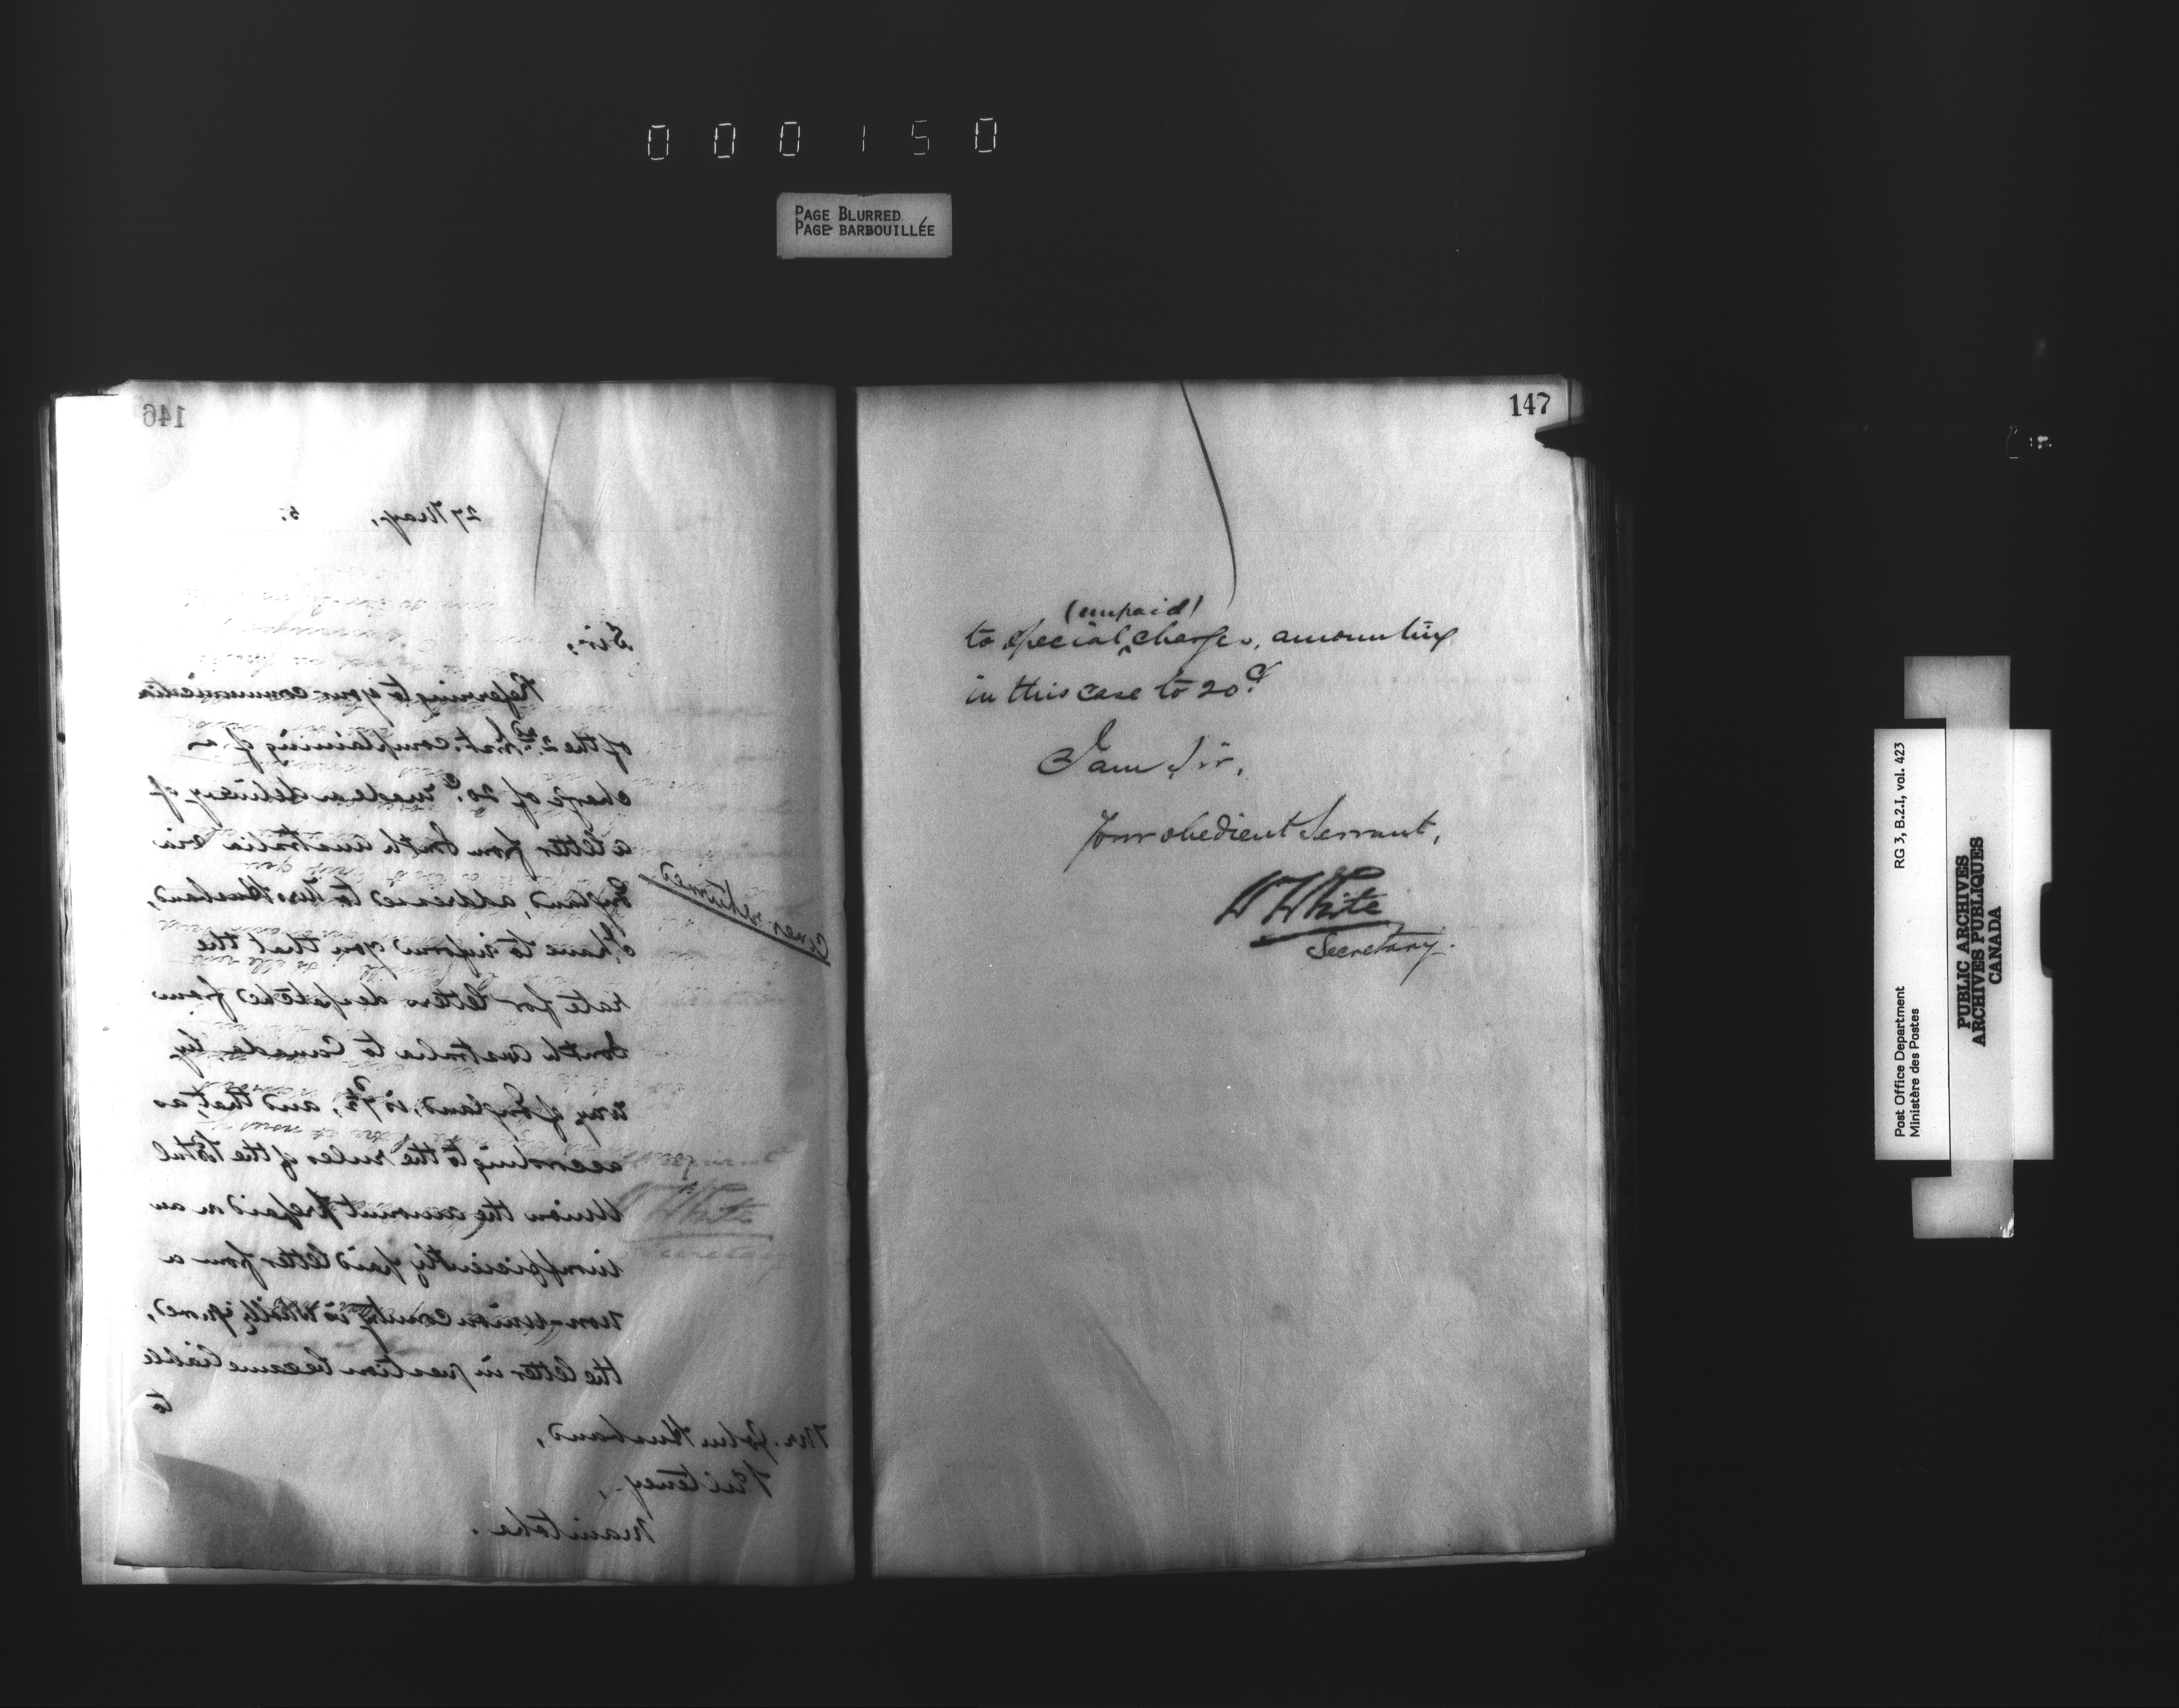 000150
PAGE BLURRED
PAGE BARBOUILLÉE
146
27 May, 5.
Sir,
Referring to your communication
of the 2nd. inst. complaining of a
charge of 20c. made on delivery of
a letter from South Australia via
England, addressed to Mrs Husband,
I have to inform you that the
rate for letters despatched from
South Australia to Canada by
way of England, is 7½d, and that, as
according to the rules of the Postal
Union the amount prepaid on an
insufficiently paid letter from a
non-Union country is wholly ignored,
the letter in question became liable
to
Cover returned
Mr. John Husband,
Pulteney,
Manitoba.
147
(unpaid)
to special ‸ charge, amounting
in this case to 20c.
I am, Sir,
Your obedient Servant,
W White
Secretary.
Post Office Department
Ministère des Postes
RG 3, B.2.I, vol. 423
PUBLIC ARCHIVES
ARCHIVES PUBLIQUES
CANADA